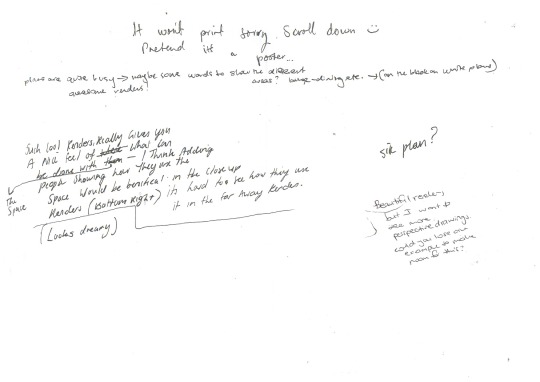 It won't print sorry. Scroll down
Pretend it's a poster...
plans are quite busy → maybe some words to show the different
awesome renders! areas? lounge-dining etc. → (on the black on white plans)
Such cool Renders, Really Gives you
A Nice feel of what can
be done with them — I Think Adding
The Space
people showing how they use the
Space would be beneficial in the Close up
Renders (Bottom Right) its hard too see how they use
it in the far Away Renders.
(Looks dreamy)
site plan?
beautiful renders,
but I want to
see more
perspective drawings.
could you lose one
example to make
room for this?